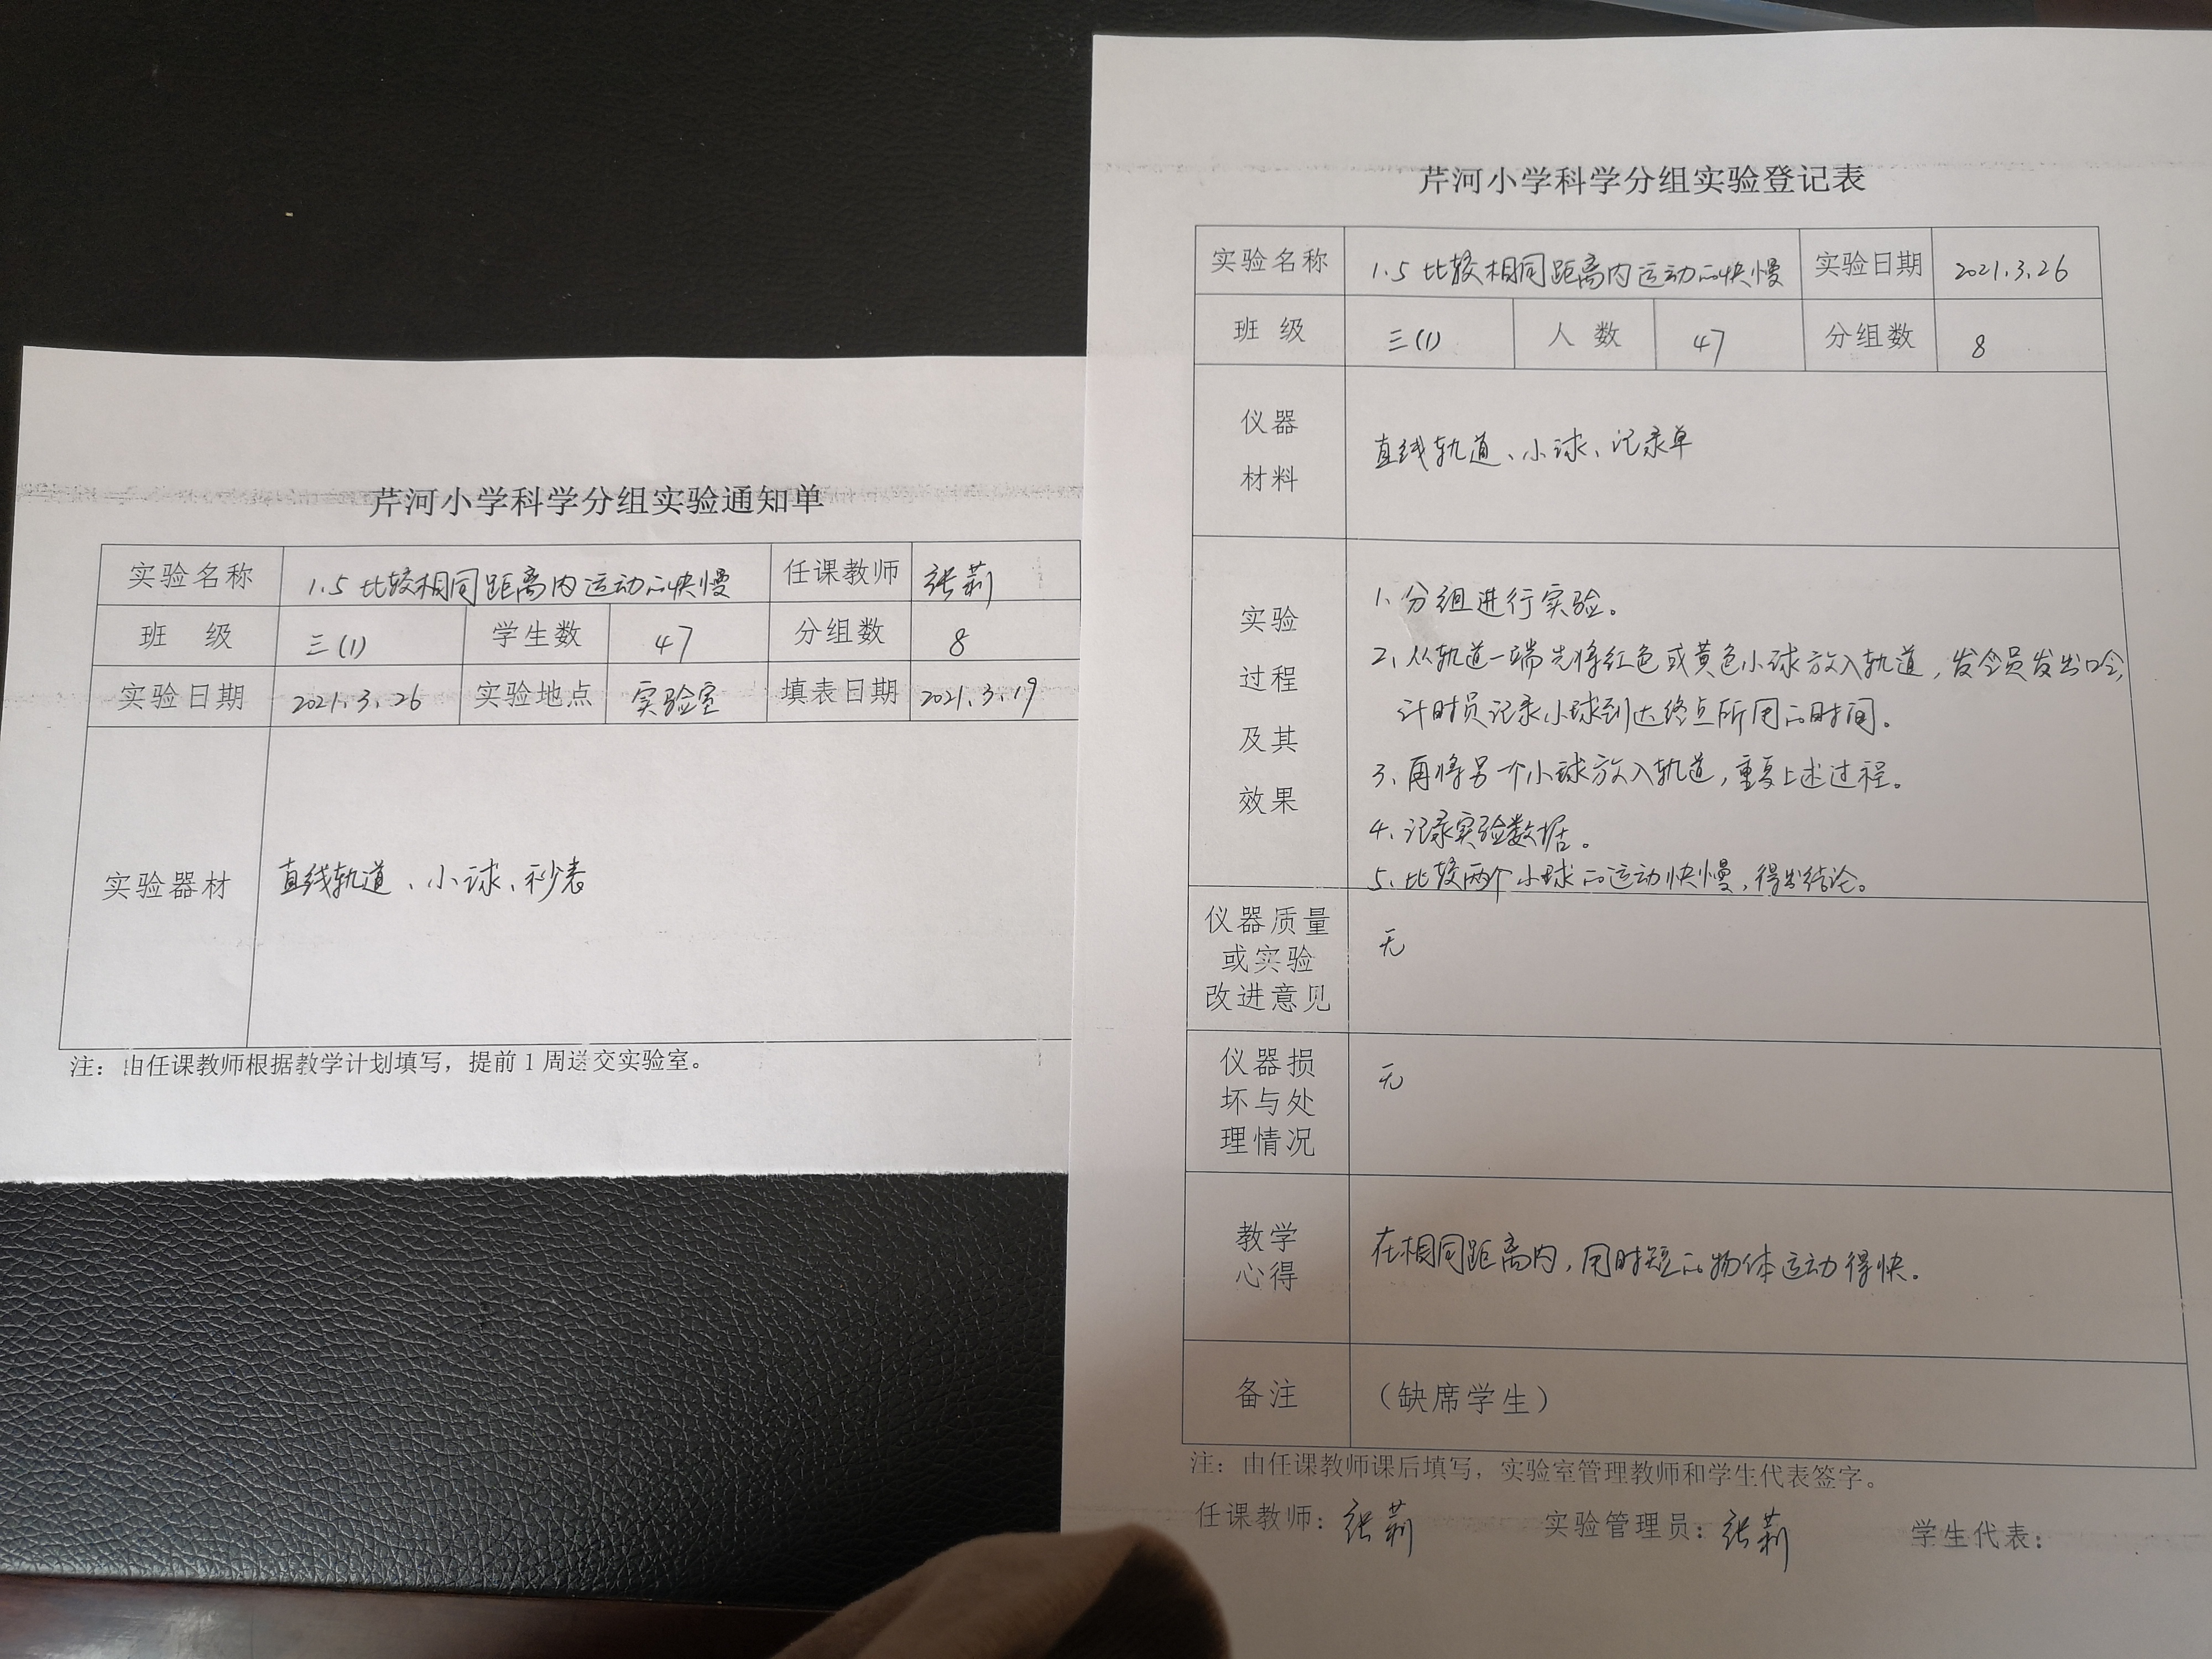 芹河小学科学分组实验通知单
实验名称 1.5 比较相同距离内运动的快慢 任课教师 张莉
班 级 三(1) 学生数 47 分组数 8
实验日期 2021.3.26 实验地点 实验室 填表日期 2021.3.19
实验器材 直线轨道、小球、秒表
注：由任课教师根据教学计划填写，提前1周送交实验室。
芹河小学科学分组实验登记表
实验名称 1.5 比较相同距离内运动的快慢 实验日期 2021.3.26
班 级 三(1) 人 数 47 分组数 8
仪器
材料
直线轨道、小球、记录单
实验
过程
及其
效果
1、分组进行实验。
2、从轨道一端先将红色或黄色小球放入轨道，发令员发出口令，
计时员记录小球到达终点所用的时间。
3、再将另一个小球放入轨道，重复上述过程。
4、记录实验数据。
5、比较两个小球的运动快慢，得出结论。
仪器质量
或实验
改进意见
无
仪器损
坏与处
理情况
无
教学
心得
在相同距离内，用时短的物体运动得快。
备注 （缺席学生）
注：由任课教师课后填写，实验室管理教师和学生代表签字。
任课教师：张莉 实验管理员：张莉 学生代表：